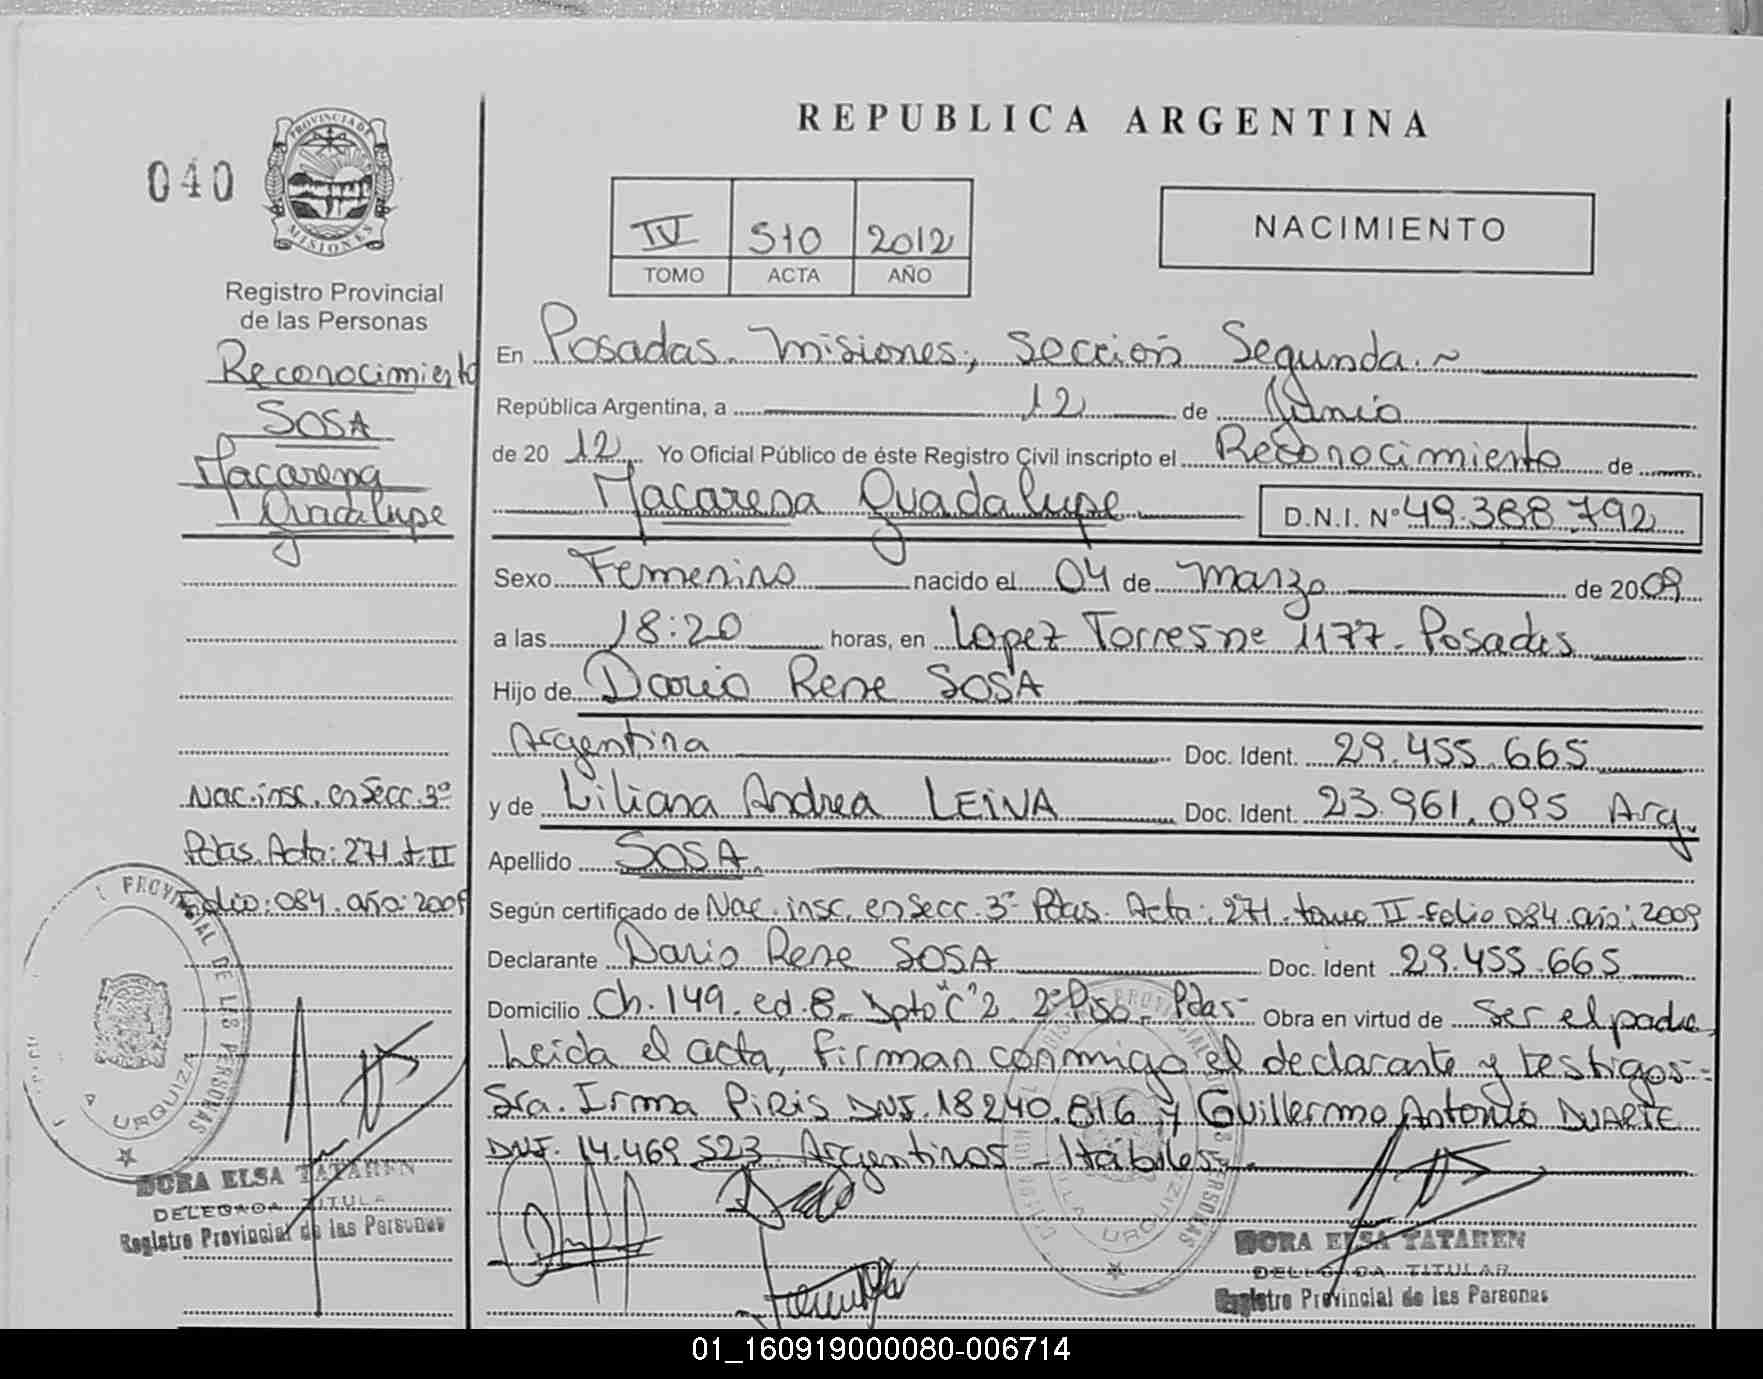 040
PROVINCIA DE
MISIONES
Registro Provincial
de las Personas
Reconocimiento
SOSA
Macarena
Guadalupe
Nac. insc. en Secc. 3ª
Pdas. Acta: 271. t. II
Folio: 084. año: 2009
PROVINCIAL DE LAS PERSONAS
A URQUIZA
DORA ELSA TATAREN
DELEGADA TITULA
Registro Provincial de las Personas
REPUBLICA ARGENTINA
IV 510 2012
TOMO ACTA AÑO
NACIMIENTO
En Posadas. Misiones, Sección Segunda.~
República Argentina, a 12 de Junio
de 2012 Yo Oficial Público de éste Registro Civil inscripto el Reconocimiento de
Macarena Guadalupe D.N.I. Nº 49.388.792
Sexo Femenino nacido el 04 de marzo de 2009
a las 18:20 horas, en Lopez Torres nº 1177. Posadas
Hijo de Dario Rene SOSA
Argentina Doc. Ident. 29.455.665
y de Liliana Andrea LEIVA Doc. Ident. 23.961.095 Arg.
Apellido SOSA.
Según certificado de Nac. insc. en Secc. 3ª Pdas. Acta: 271. tomo II-folio 084. año: 2009
Declarante Dario Rene SOSA Doc. Ident 29.455.665
Domicilio Ch. 149. ed. 8- Dpto "C" 2. 2º Piso- Pdas- Obra en virtud de Ser el padre.
Leida el acta, firman conmigo el declarante y testigos-
Sra. Irma PIRIS DNI. 18240.816 y Guillermo Antonio DUARTE
DNI. 14.469.523. Argentinos - Hábiles.
DORA ELSA TATAREN
DELEGADA TITULAR
Registro Provincial de las Personas
01_160919000080-006714